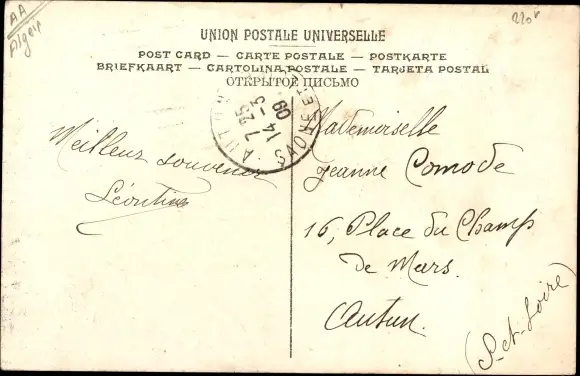 AA
Alger
220f
UNION POSTALE UNIVERSELLE
POST CARD — CARTE POSTALE — POSTKARTE
BRIEFKAART — CARTOLINA POSTALE — TARJETA POSTAL
ОТКРЫТОЕ ПИСЬМО
AUTUN
7 25
14 - 3
09
SAONE ET
Meilleur souvenir
Léontine
Mademoiselle
Jeanne Comode
16, Place du Champ
de Mars.
Autun.
(S-et-Loire)